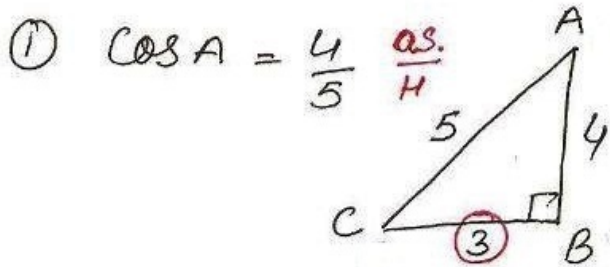 ① Cos A = 4/5 as./H
A
5
4
C
3
B